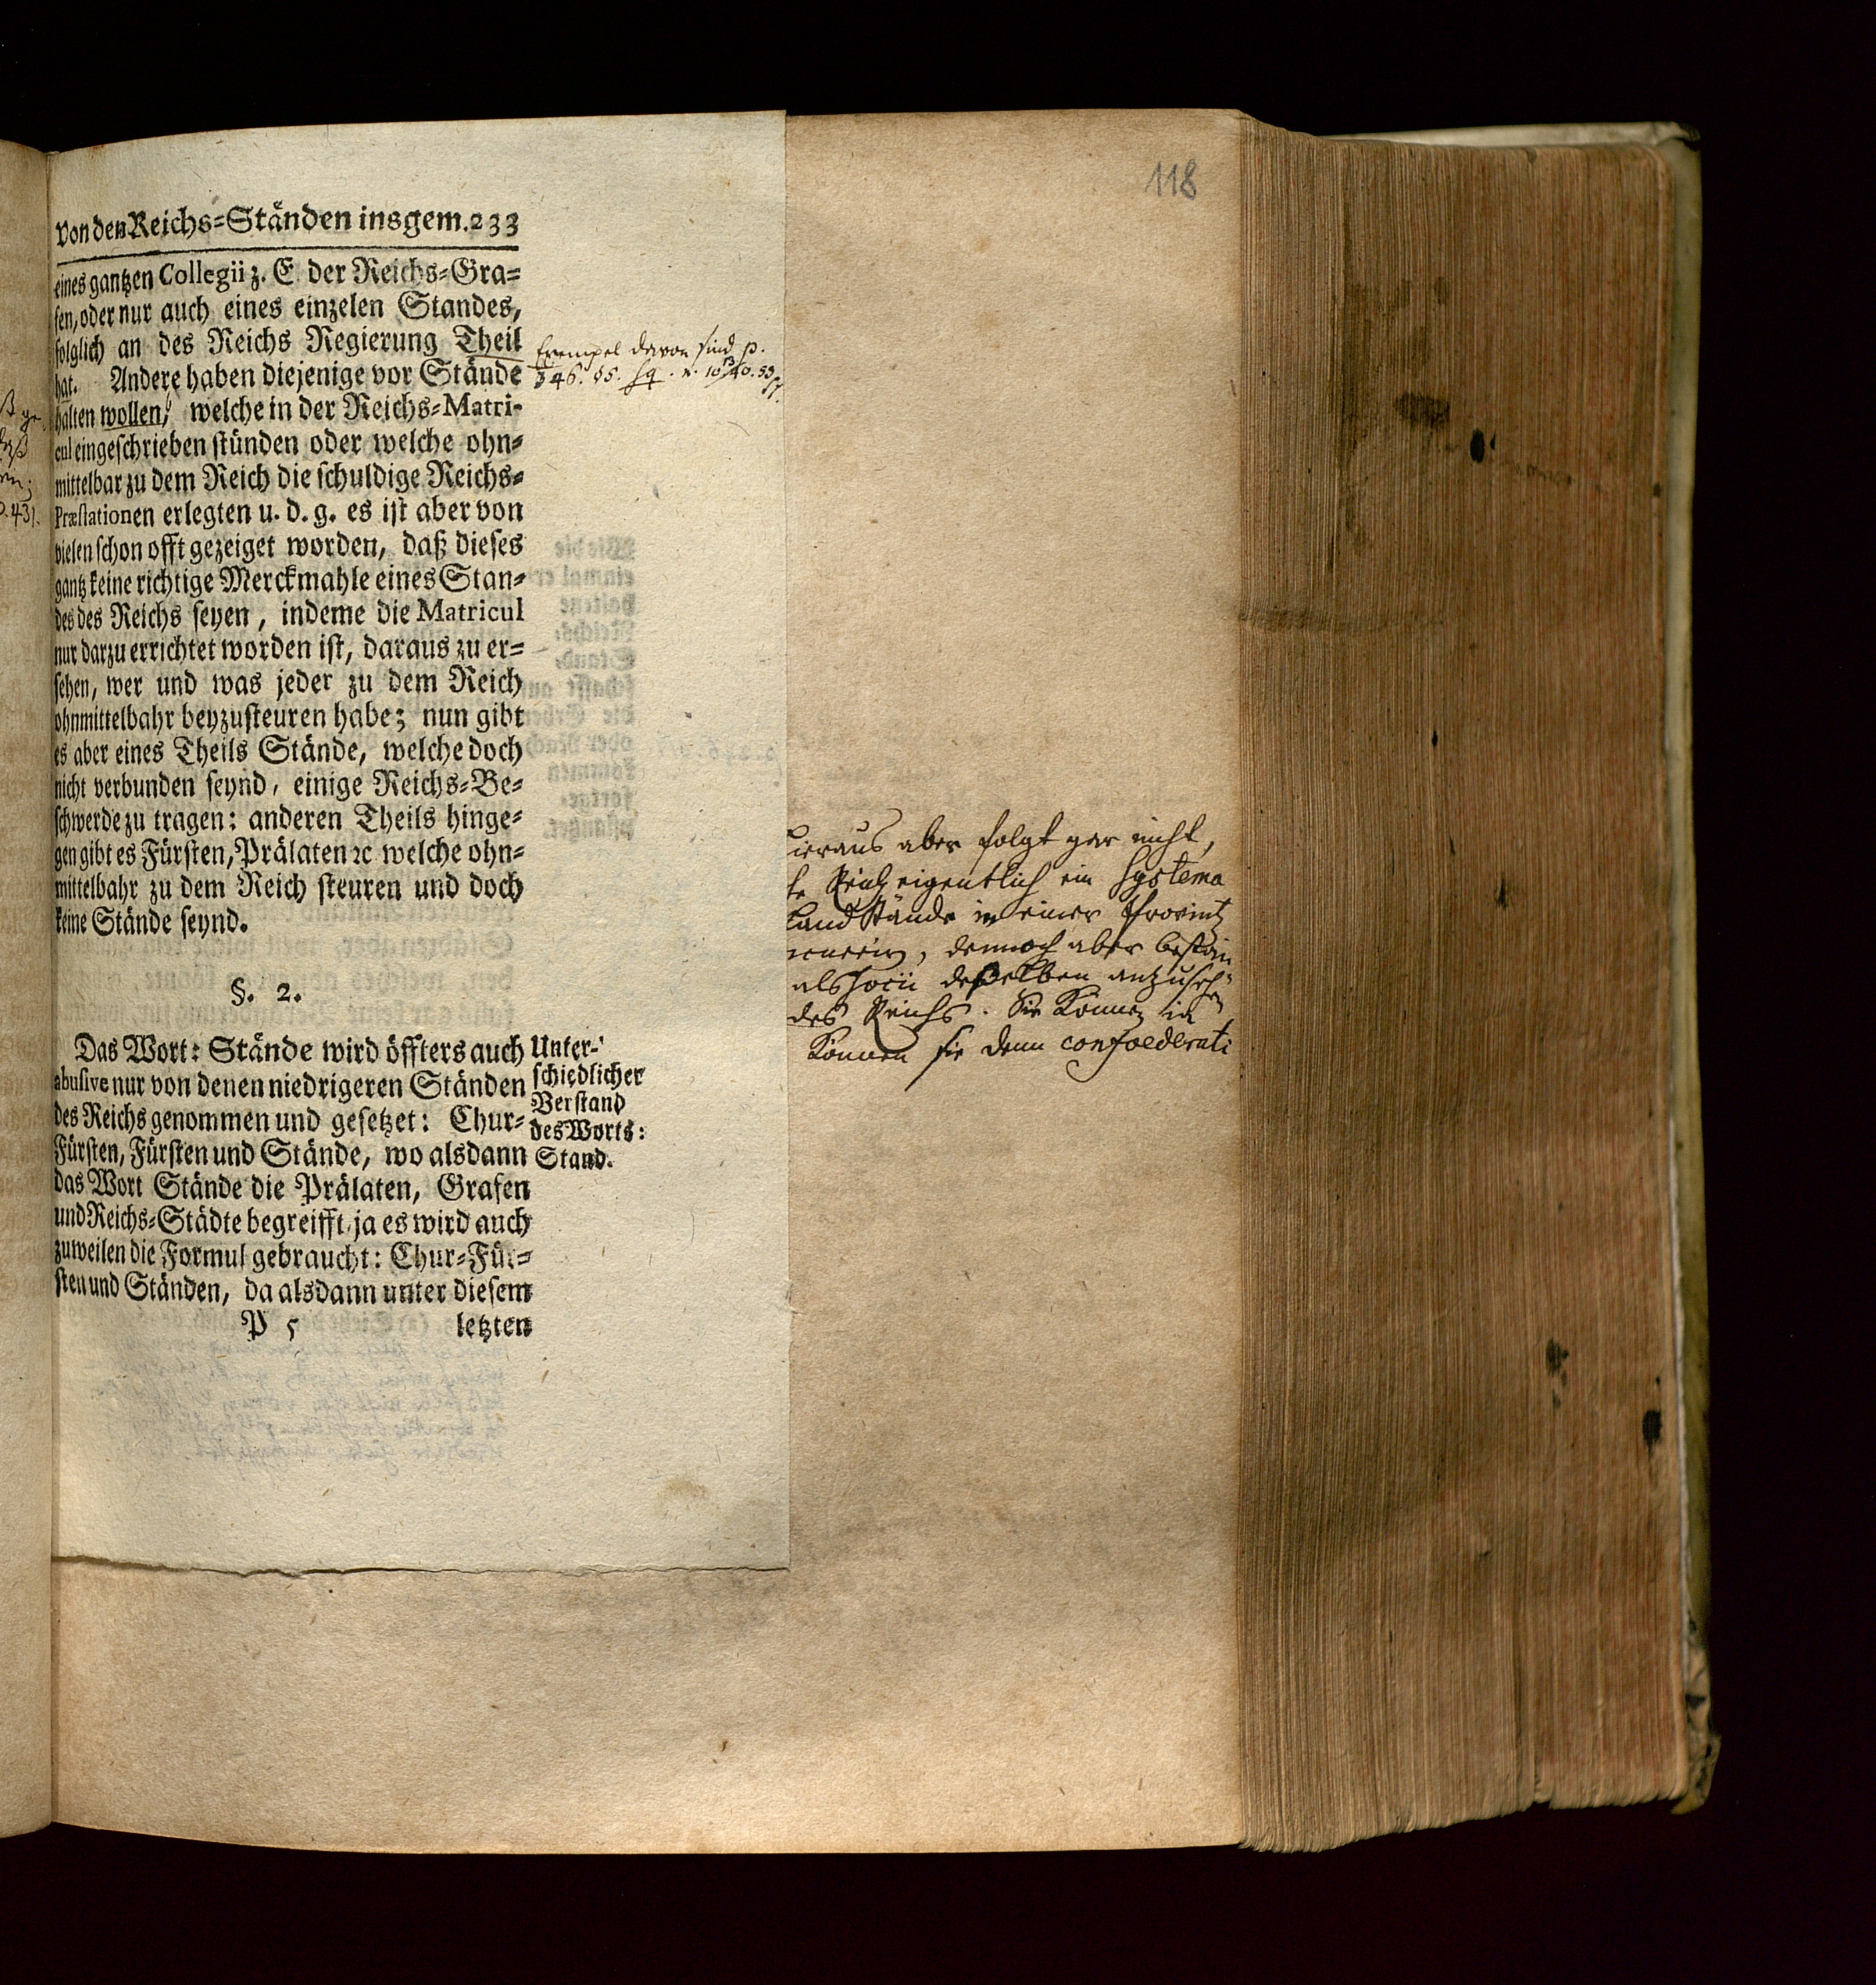 118
von den Reichs=Ständen insgem. 233
eines gantzen Collegii z. E. der Reichs=Gra=
fen, oder nur auch eines einzelen Standes,
folglich an des Reichs Regierung Theil
hat. Andere haben diejenige vor Stände
halten wollen, welche in der Reichs=Matri-
cul eingeschrieben stünden oder welche ohn=
mittelbar zu dem Reich die schuldige Reichs=
Præstationen erlegten u. d. g. es ist aber von
vielen schon offt gezeiget worden, daß dieses
gantz keine richtige Merckmahle eines Stan=
des des Reichs seyen, indeme die Matricul
nur darzu errichtet worden ist, daraus zu er=
sehen, wer und was jeder zu dem Reich
ohnmittelbahr beyzusteuren habe; nun gibt
es aber eines Theils Stände, welche doch
nicht verbunden seynd, einige Reichs=Be=
schwerde zu tragen: anderen Theils hinge=
gen gibt es Fürsten, Prälaten ꝛc welche ohn=
mittelbahr zu dem Reich steuren und doch
keine Stände seynd.
§. 2.
Das Wort: Stände wird öffters auch
abusive nur von denen niedrigeren Ständen
des Reichs genommen und gesetzet: Chur=
Fürsten, Fürsten und Stände, wo alsdann
das Wort Stände die Prälaten, Grafen
und Reichs=Städte begreifft, ja es wird auch
zuweilen die Formul gebraucht: Chur=Für=
sten und Ständen, da alsdann unter diesem
P 5 letzten
Unter-
schiedlicher
Verstand
des Worts:
Stand.
Exempel davon sind p.
346. 55. sq.
ieraus aber folgt gar nicht,
Reich eigentlich ein Systema
Land Stände in einer Provintz
dennoch aber
als Socii deßelben anzuseh
des Reichs. Sie können
können sie denn confoederati